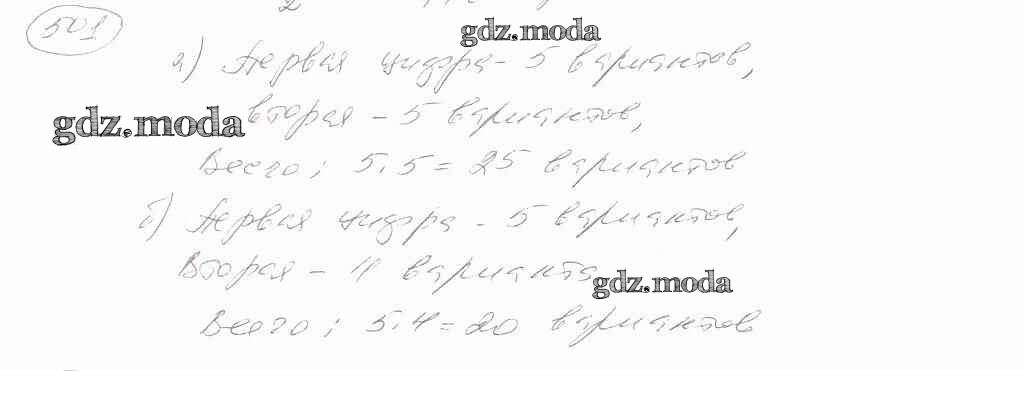 501
gdz.moda
а) Первая цифра - 5 вариантов,
gdz.moda
вторая - 5 вариантов,
Всего: 5·5 = 25 вариантов
б) Первая цифра - 5 вариантов,
Вторая - 4 варианта
gdz.moda
Всего: 5·4 = 20 вариантов